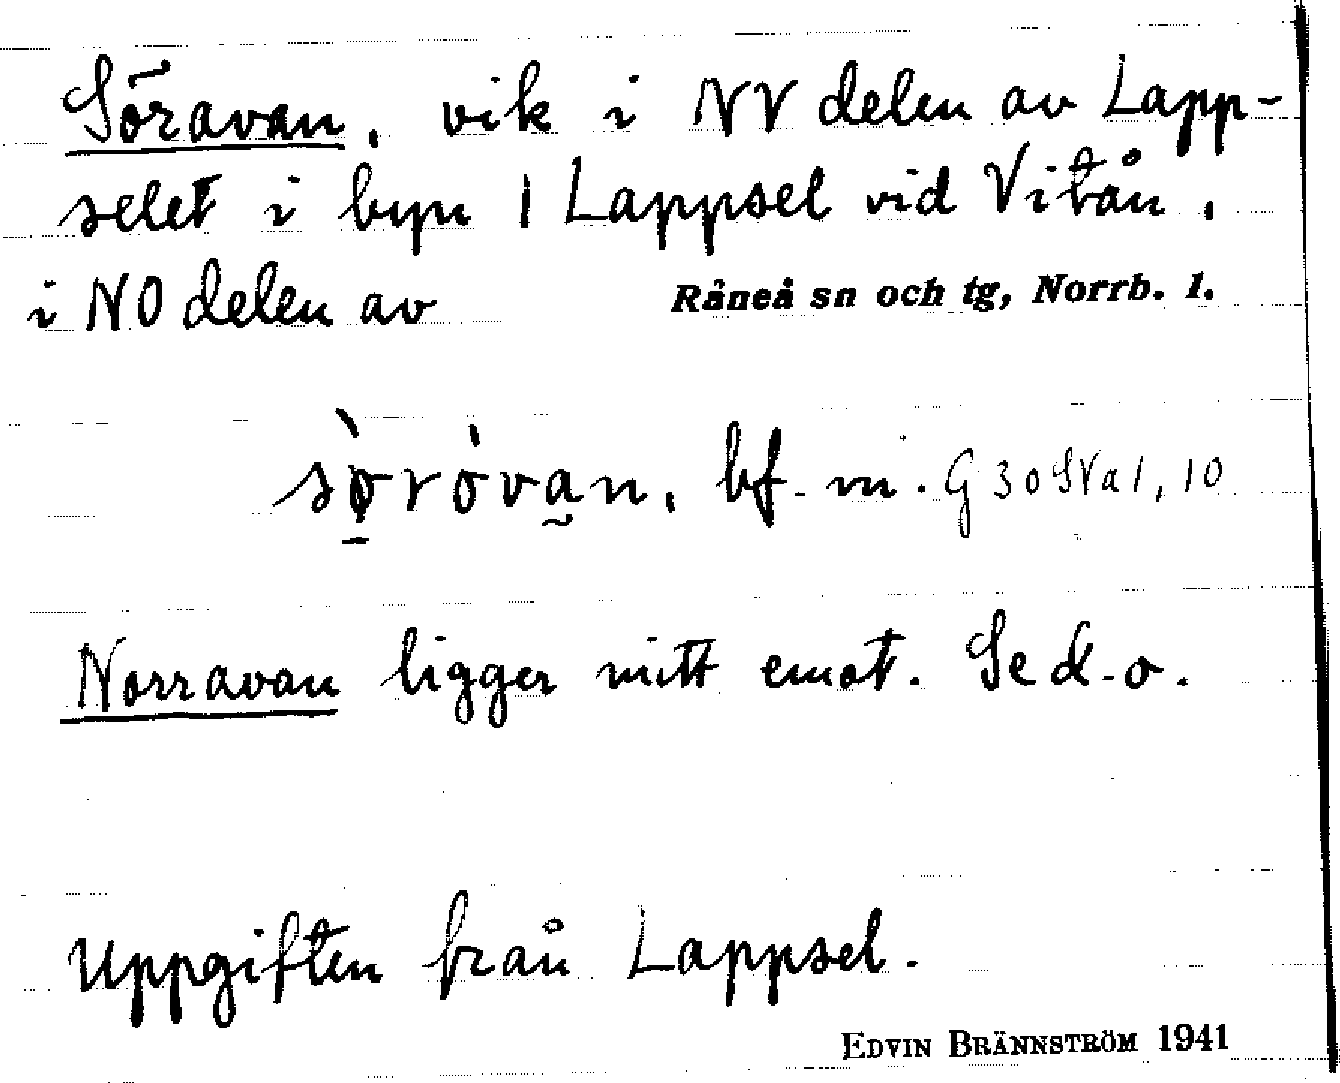 Söravan, vik i NV delen av Lapp-
selet i byn 1 Lappsel vid Vitån,
i NO delen av Råneå sn och tg, Norrb. l.
sø̀ròvan, bf. m. G 30 SVa 1, 10
Norravan ligger mitt emot. Se d. o.
Uppgiften från Lappsel.
EDVIN BRÄNNSTRÖM 1941